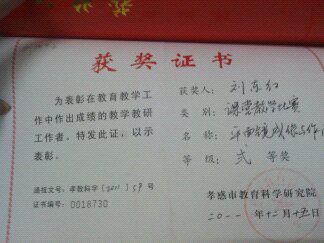 获奖证书
为表彰在教育教学工
作中作出成绩的教学教研
工作者。特发此证,以示
表彰。
通报文号:孝教科字〔2011〕59号
证书编号:0018730
获奖人:刘东红
类别:课堂教学比赛
名称:平面镜成像与作
等级:贰等奖
孝感市教育科学研究院
二〇一一年十二月十五日